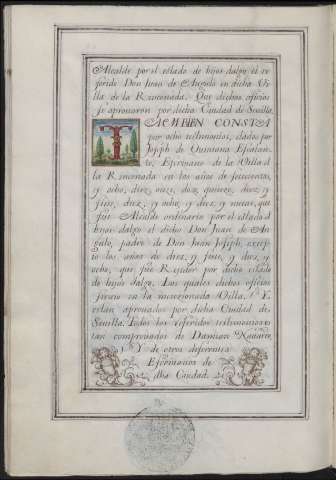 Alcalde por el estado de hijos dalgo el re
ferido Don Juan de Angulo en dicha Vi
lla de la Rinconada. Que dichos oficios
se aprouaron por dicha Ciudad de Sevilla.
TACMBIEN CONSTA
por ocho testimonios, dados por
Joseph de Quintana Escalan
te, Escriuano de la Villa d
la Rinconada en los años de setecientos,
y ocho, diez, onze, doze, quinze, diez y
seis, diez, y ocho, y diez, y nueue, que
fue Alcalde ordinario por el estado d
hijos dalgo el dicho Don Juan de An
gulo, padre de Don Juan Joseph, excep
to los años de diez, y seis, y diez, y
ocho, que fue Rexidor por dicho estado
de hijos dalgo. Los quales dichos oficios
siruio en la mencionada Villa. Y
estan aprouados por dicha Ciudad de
Sevilla. Todos los referidos testimonios es
tan comprouados de Damian Nauarro,
Y de otros diferentes
Escriuanos de
dha Ciudad.